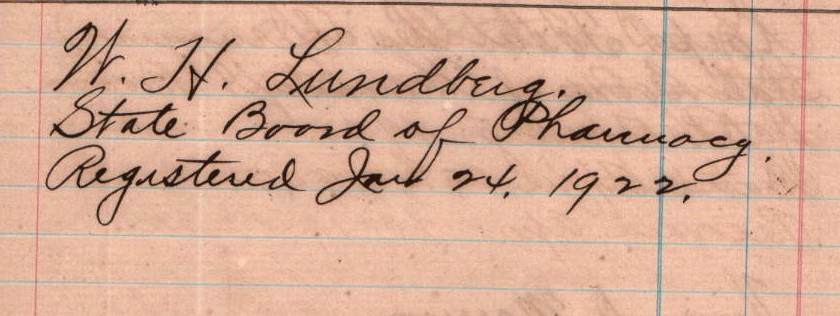 W. H. Lundberg.
State Board of Pharmacy.
Registered Jan 24, 1922.